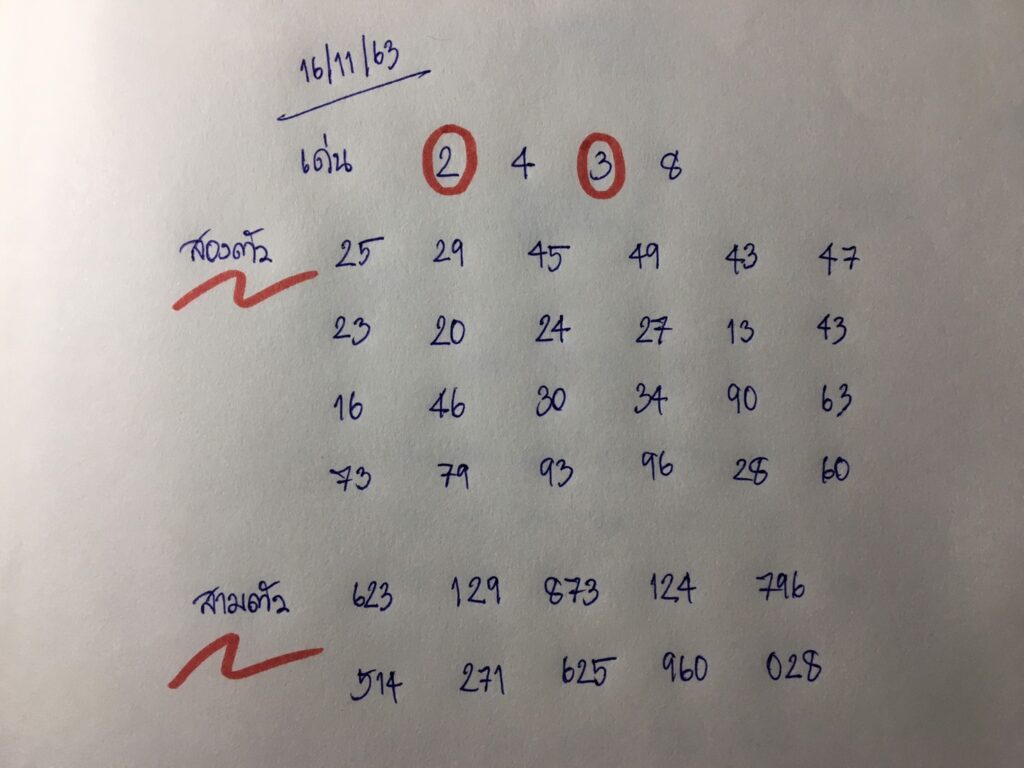 16/11/63
เด่น 2 4 3 8
สองตัว 25 29 45 49 43 47
23 20 24 27 13 43
16 46 30 34 90 63
73 79 93 96 28 60
สามตัว 623 129 873 124 796
514 271 625 960 028